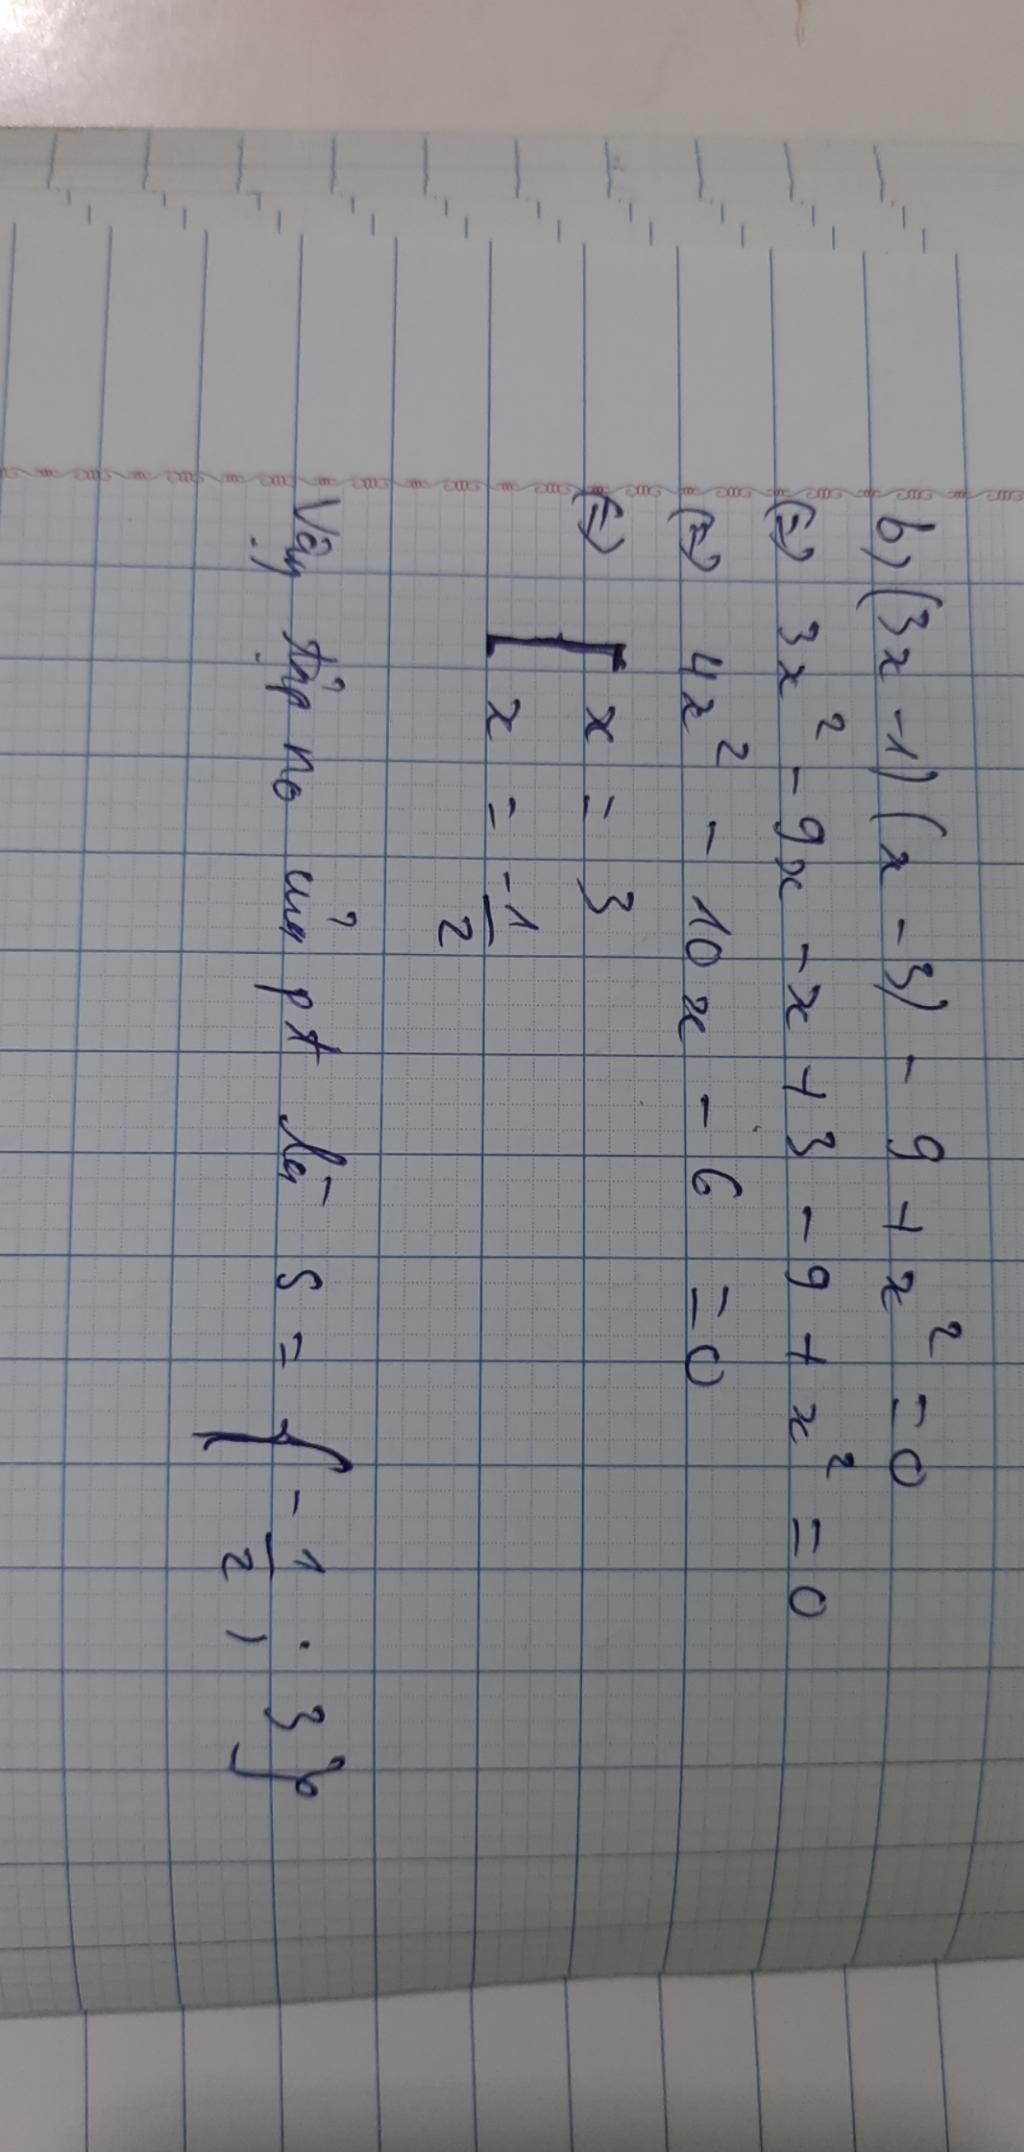 b) (3x - 1) (x - 3) - 9 + x² = 0
(=) 3x² - 9x - x + 3 - 9 + x² = 0
(=) 4x² - 10x - 6 = 0
(=) [ x = 3
[ x = -1/2
Vậy tập nо của pt là S = { -1/2 ; 3 }